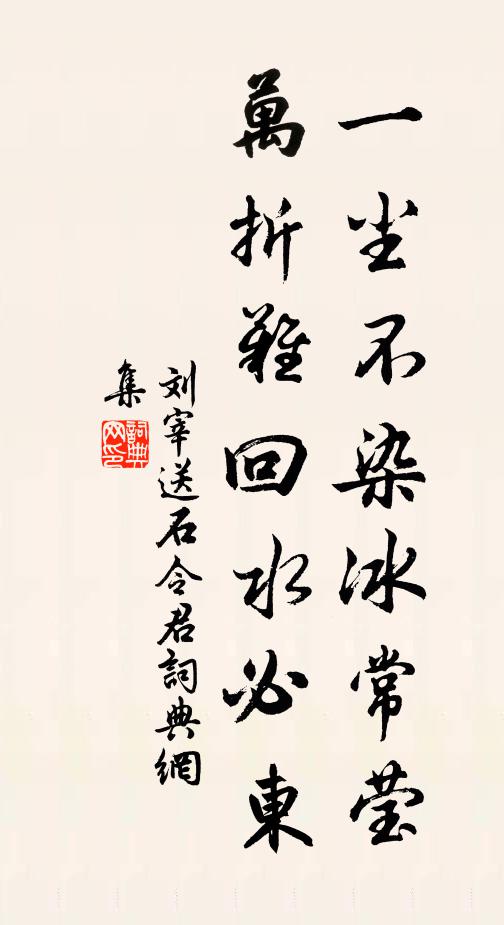 一尘不染冰常莹
萬折難回水必東
刘宰送石令君詞典網
集
詞典
网印